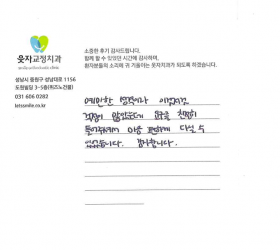 웃자교정치과
성남시 중원구 성남대로 1156
도원빌딩 3~5층(위즈노건물)
031 606 0282
letssmile.co.kr
소중한 후기 감사드립니다.
함께 할 수 있었던 시간에 감사하며,
환자분들의 소리에 귀 기울이는 웃자치과가 되도록 하겠습니다.
예민한 성격이라 이것저것
걱정이 많았는데 모두 친절히
마음 편하게 다닐 수
있었습니다. 감사합니다.